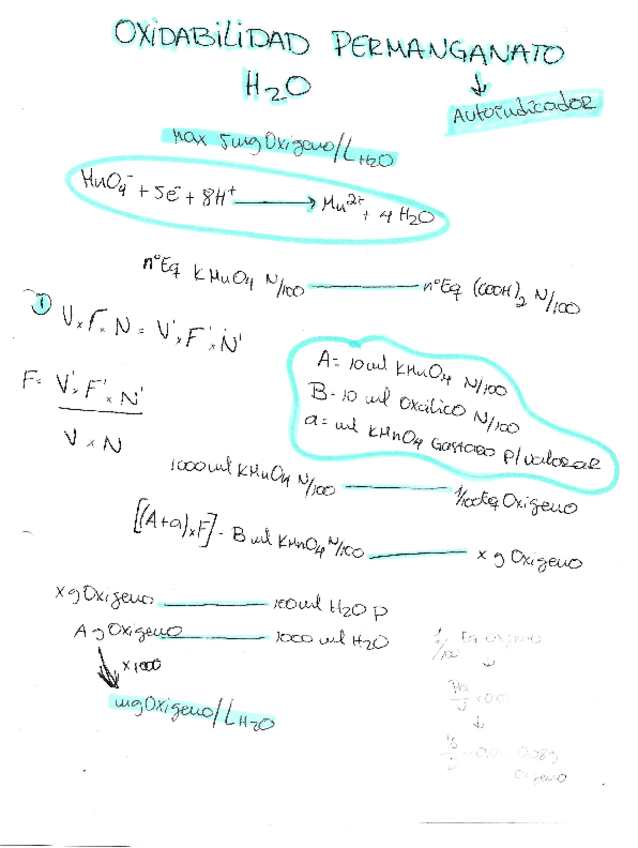 OXIDABILIDAD PERMANGANATO
H2O
↓
Autoindicador
Max 5mg Oxigeno/L H2O
MnO4⁻ + 5e⁻ + 8H⁺ → Mn²⁺ + 4 H2O
nºEq KMnO4 N/100 — nºEq (COOH)2 N/100
① V x F x N = V' x F' x N'
F= V' x F' x N'
V x N
A= 10 ml KMnO4 N/100
B- 10 ml Oxálico N/100
a= ml KMnO4 Gastado p/valorar
1000ml KMnO4 N/100 — 1/100 Eq Oxigeno
[(A+a) x F] - B ml KMnO4 N/100 — x g Oxigeno
x g Oxigeno — 100ml H2O p
A g Oxigeno — 1000 ml H2O
↓ x 1000
mgOxigeno/L H2O
1/100 Eq oxigeno
↓
↓
0,08g
Oxigeno